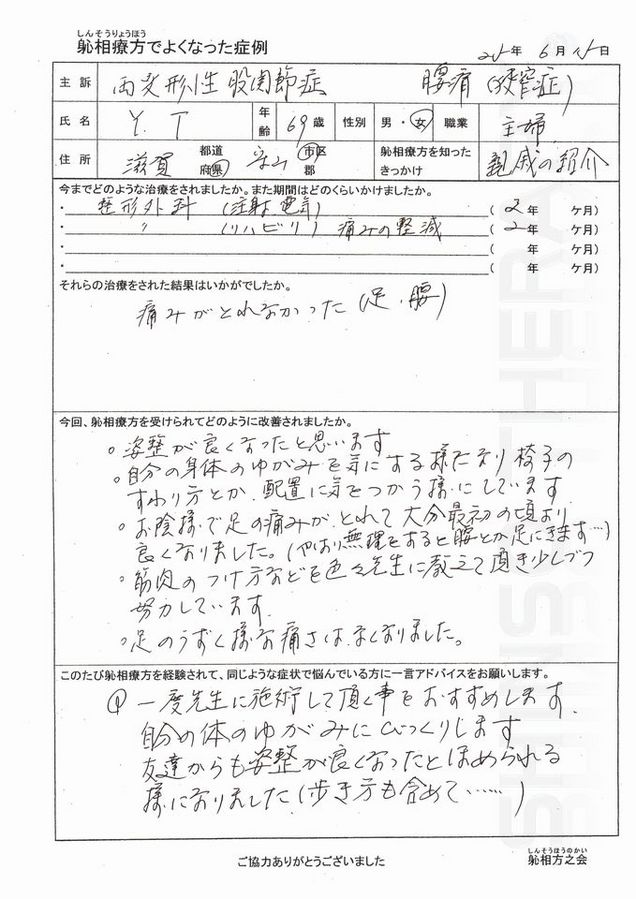 しんそうりょうほう
躰相療方でよくなった症例
25年 6月 15日
主訴 両変形性股関節症 腰痛(狭窄症)
氏名 Y. T 年齢 69歳 性別 男・女 職業 主婦
住所 滋賀 都道府県 守山 市区郡 躰相療方を知ったきっかけ 親戚の紹介
今までどのような治療をされましたか。また期間はどのくらいかけましたか。
・整形外科 (注射、電気) (2年 ケ月)
・〃 (リハビリ) 痛みの軽減 (2年 ケ月)
・ (年 ケ月)
・ (年 ケ月)
それらの治療をされた結果はいかがでしたか。
痛みがとれなかった(足・腰)
今回、躰相療方を受けられてどのように改善されましたか。
○姿整が良くなったと思います
○自分の身体のゆがみを気にする様になり椅子の
すわり方とか、配置に気をつかう様にしています
○お陰様で足の痛みがとれて大分最初の頃より
良くなりました。(やはり無理をすると腰とか足にきます…)
○筋肉のつけ方などを色々先生に教えて頂き少しづつ
努力しています。
○足のうずく様な痛さはなくなりました。
このたび躰相療方を経験されて、同じような症状で悩んでいる方に一言アドバイスをお願いします。
一度先生に施術して頂く事をおすすめします。
自分の体のゆがみにびっくりします
友達からも姿整が良くなったとほめられる
様になりました(歩き方も含めて……)
ご協力ありがとうございました
しんそうほうのかい
躰相方之会